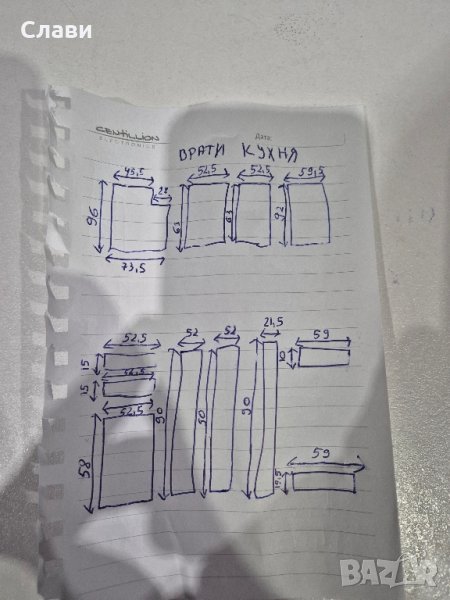 Слави
CENTILLION
ELECTRONICS
Дата:
ВРАТИ КУХНЯ
45,5 28 52,5 52,5 59,5
96 63 63 92
73,5
52,5 52 52 21,5 59
15 10
52,5
15
52,5 90 90 90
58 59
19,5
BAZAR